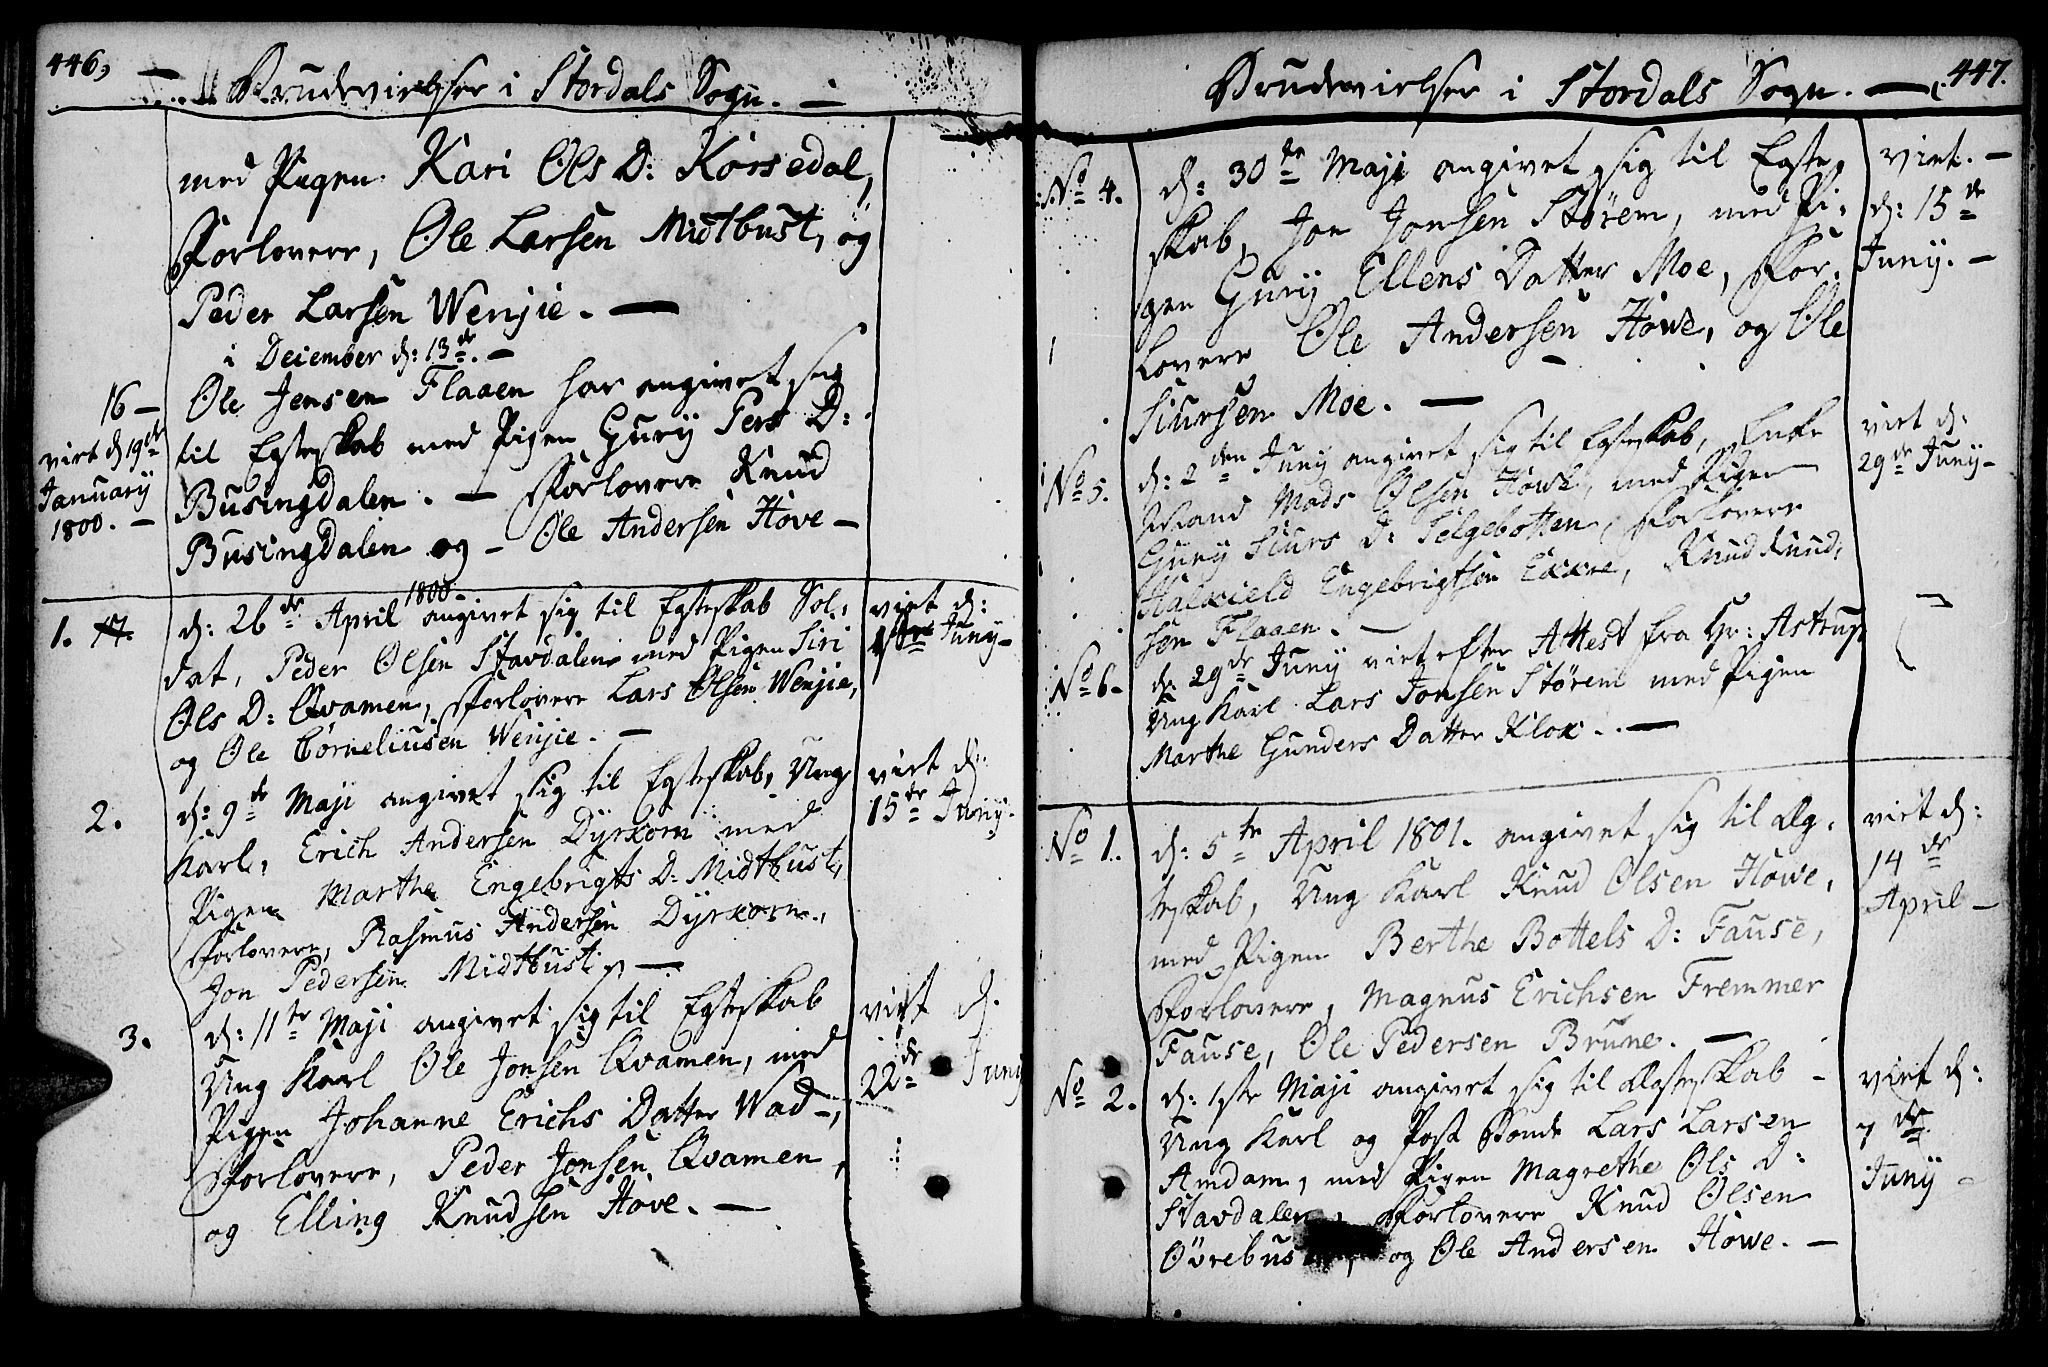 446,
Brudevielser i Stordals Sogn. —
med Pigen Kari Ols D: Korsedal,
Forlovere, Ole Larsen Midtbust, og
Peder Larsen Wenjie. —
i December d: 13de. —
16 —
Ole Jensen Flaaen har angivet sig
til Egteskab med Pigen Gury Pers D:
Busingdalen. — Forlovere Knud
Busingdalen og — Ole Andersen Hove —
viet d 19de
January
1800. —
1. 17.
d: 26de April 1800. angivet sig til Egteskab Sol,
dat, Peder Olsen Stavdalen med Pigen Siri
Ols D: Qvamen, Forlovere Lars Olsen Wenjie,
og Ole Corneliusen Wenjie. —
viet d:
Juny —
2.
d: 9de Maji angivet sig til Egteskab, Ung
Karl, Erich Andersen Dyrkorn med
Pigen Marthe Engebrigts D: Midtbust,
Forlovere, Rasmus Andersen Dyrkorn,
Jon Pedersen Midtbust. —
viet d:
15de Juny.
3.
d: 11te Maji angivet sig til Egteskab
Ung Karl Ole Jonsen Qvamen, med
Pigen Johanne Erichs Datter Wad —,
Forlovere, Peder Jonsen Qvamen,
og Elling Knudsen Hove. —
viet d.
22de Juny
447.
Brudevielser i Stordals Sogn. —
No 4.
d: 30te Maji angivet sig til Egte,
skab, Jon Jonsen Störem, med Pi,
gen Gury Ellens Datter Moe, For,
lovere Ole Andersen Howe, og Ole
Siursen Moe. —
viet. —
d: 15de
Juny. —
No 5.
d: 2den Juny angivet sig til Egteskab, Enke
Mand Mads Olsen Howe, med Pigen
Gury Siurs D: Selgebotten, Forlovere
Halkield Engebrigtsen Exkre, Knud Knud,
sen Flaaen. —
viet d:
29de Juny —
No 6.
d: 29de Juny viet efter Attest fra Hr: Astrup
Ung Karl Lars Jonsen Störem med Pigen
Marthe Gunders Datter Klok. —
No 1.
d: 5te April 1801. angivet sig til Æg,
teskab, Ung Karl Knud Olsen Howe,
med Pigen Berthe Bottels D: Fause,
Forlovere, Magnus Erichsen Fremmer
Fause, Ole Pedersen Brune. —
viet d:
14de
April —
No 2.
d: 1ste Maji angivet sig til Ægteskab —
Ung Karl og Post Bonde Lars Larsen
Amdam, med Pigen Magrethe Ols D:
Stavdalen, Forlovere Knud Olsen
Övrebust, og Ole Andersen Howe. —
viet d:
7de
Juny —